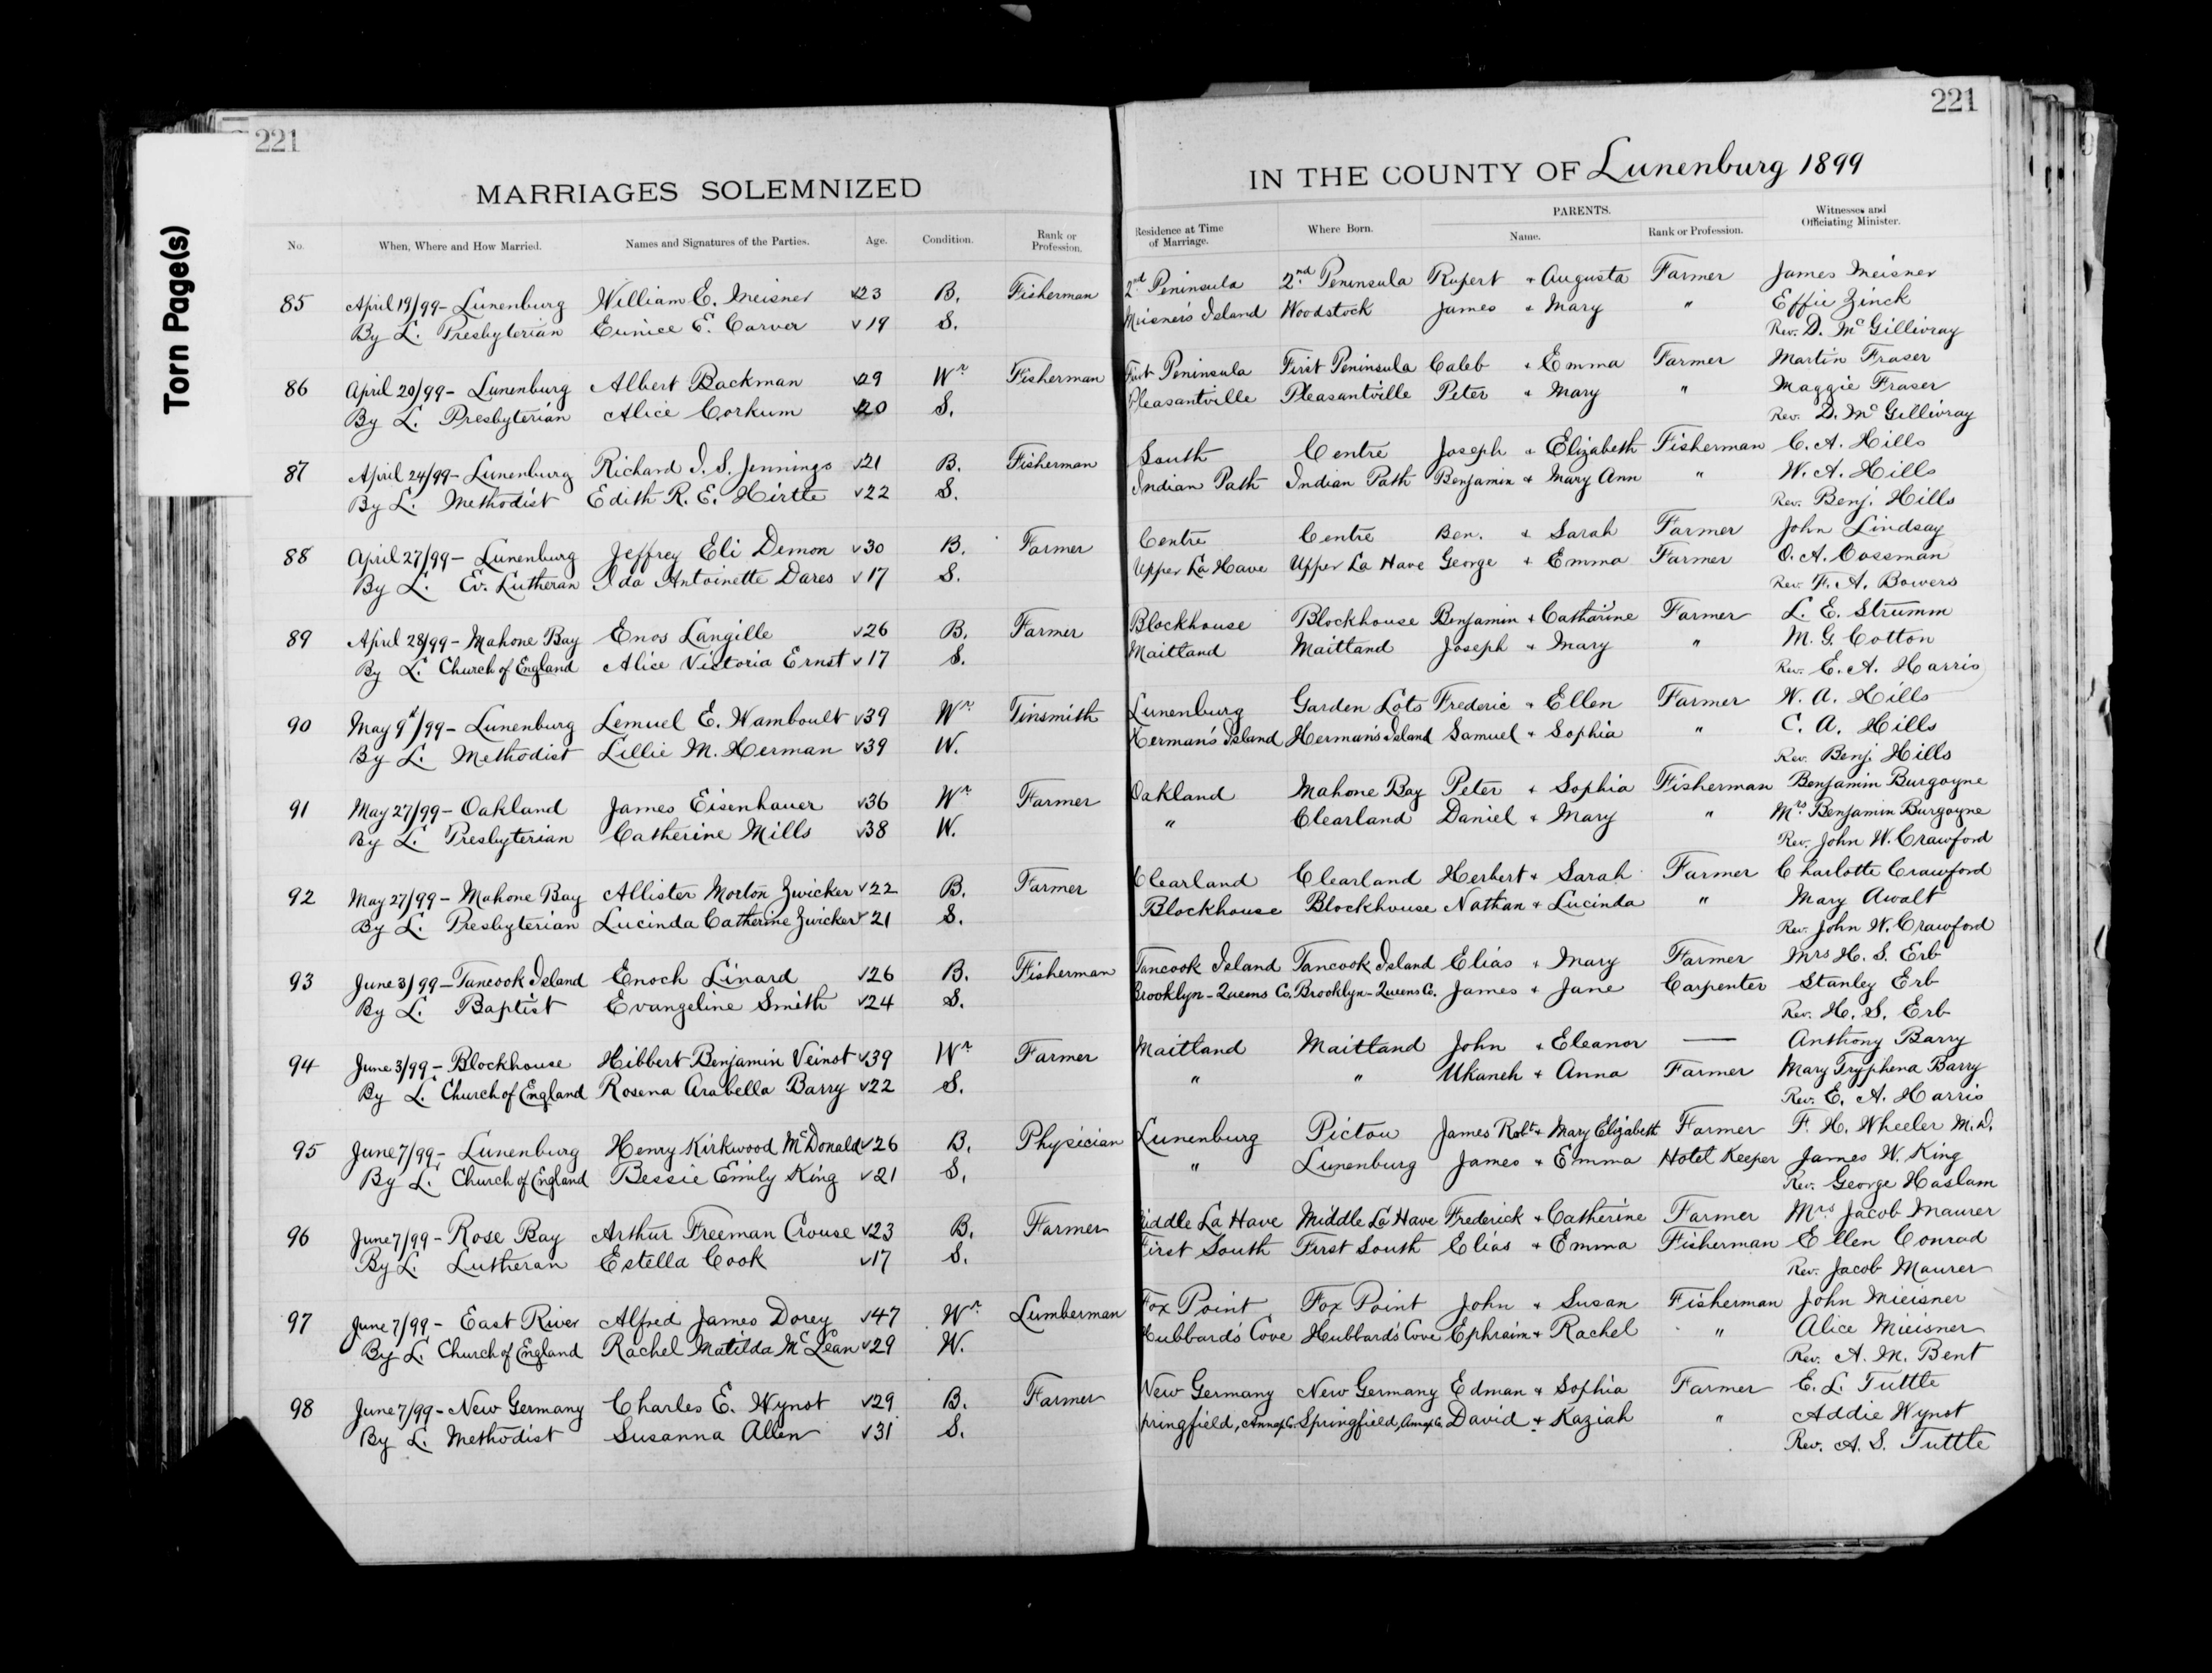 Torn Page(s)
221
221
MARRIAGES SOLEMNIZED IN THE COUNTY OF Lunenburg 1899
No. When, Where and How Married. Names and Signatures of the Parties. Age. Condition. Rank or Profession. Residence at Time of Marriage. Where Born. PARENTS. Name. Rank or Profession. Witnesses and Officiating Minister.
85 April 19/99 - Lunenburg William E. Meisner 23 B. Fisherman 2nd Peninsula 2nd Peninsula Rupert + Augusta Farmer James Meisner
By L. Presbyterian Eunice E. Carver 19 S. Meisner's Island Woodstock James + Mary " Effie Zinck
Rev. D. McGillivray
86 April 20/99 - Lunenburg Albert Backman 29 Wr Fisherman First Peninsula First Peninsula Caleb + Emma Farmer Martin Fraser
By L. Presbyterian Alice Corkum 20 S. Pleasantville Pleasantville Peter + Mary " Maggie Fraser
Rev. D. McGillivray
87 April 24/99 - Lunenburg Richard I. S. Jennings 21 B. Fisherman South Centre Joseph + Elizabeth Fisherman C. A. Hills
By L. Methodist Edith R. E. Hirtle 22 S. Indian Path Indian Path Benjamin + Mary Ann " W. A. Hills
Rev. Benj. Hills
88 April 27/99 - Lunenburg Jeffrey Eli Demon 30 B. Farmer Centre Centre Ben. + Sarah Farmer John Lindsay
By L. Ev. Lutheran Ida Antoinette Dares 17 S. Upper La Have Upper La Have George + Emma Farmer O. A. Cossman
Rev. F. A. Bowers
89 April 28/99 - Mahone Bay Enos Langille 26 B. Farmer Blockhouse Blockhouse Benjamin + Catharine Farmer L. E. Strumm
By L. Church of England Alice Victoria Ernst 17 S. Maitland Maitland Joseph + Mary " M. G. Cotton
Rev. E. A. Harris
90 May 9th/99 - Lunenburg Lemuel E. Wamboult 39 Wr Tinsmith Lunenburg Garden Lots Frederic + Ellen Farmer W. A. Hills
By L. Methodist Lillie M. Herman 39 W. Herman's Island Herman's Island Samuel + Sophia " C. A. Hills
Rev. Benj. Hills
91 May 27/99 - Oakland James Eisenhauer 36 Wr Farmer Oakland Mahone Bay Peter + Sophia Fisherman Benjamin Burgoyne
By L. Presbyterian Catherine Mills 38 W. " Clearland Daniel + Mary " Mrs Benjamin Burgoyne
Rev. John W. Crawford
92 May 27/99 - Mahone Bay Allister Morton Zwicker 22 B. Farmer Clearland Clearland Herbert + Sarah Farmer Charlotte Crawford
By L. Presbyterian Lucinda Catherine Zwicker 21 S. Blockhouse Blockhouse Nathan + Lucinda " Mary Awalt
Rev. John W. Crawford
93 June 3/99 - Tancook Island Enoch Linard 26 B. Fisherman Tancook Island Tancook Island Elias + Mary Farmer Mrs H. S. Erb
By L. Baptist Evangeline Smith 24 S. Brooklyn - Queens Co. Brooklyn - Queens Co. James + Jane Carpenter Stanley Erb
Rev. H. S. Erb
94 June 3/99 - Blockhouse Hibbert Benjamin Veinot 39 Wr Farmer Maitland Maitland John + Eleanor — Anthony Barry
By L. Church of England Rosena Arabella Barry 22 S. " " Ukaneh + Anna Farmer Mary Tryphena Barry
Rev. E. A. Harris
95 June 7/99 - Lunenburg Henry Kirkwood McDonald 26 B. Physician Lunenburg Pictou James Robt + Mary Elizabeth Farmer F. H. Wheeler M.D.
By L. Church of England Bessie Emily King 21 S. " Lunenburg James + Emma Hotel Keeper James W. King
Rev. George Haslam
96 June 7/99 - Rose Bay Arthur Freeman Crouse 23 B. Farmer Middle La Have Middle La Have Frederick + Catherine Farmer Mrs Jacob Maurer
By L. Lutheran Estella Cook 17 S. First South First South Elias + Emma Fisherman Ellen Conrad
Rev. Jacob Maurer
97 June 7/99 - East River Alfred James Dorey 47 Wr Lumberman Fox Point Fox Point John + Susan Fisherman John Mieisner
By L. Church of England Rachel Matilda McLean 29 W. Hubbard's Cove Hubbard's Cove Ephraim + Rachel " Alice Mieisner
Rev. A. M. Bent
98 June 7/99 - New Germany Charles E. Wynot 29 B. Farmer New Germany New Germany Edman + Sophia Farmer E. L. Tuttle
By L. Methodist Susanna Allen 31 S. Springfield, Annap Co. Springfield, Annap Co. David + Kaziah " Addie Wynot
Rev. A. S. Tuttle